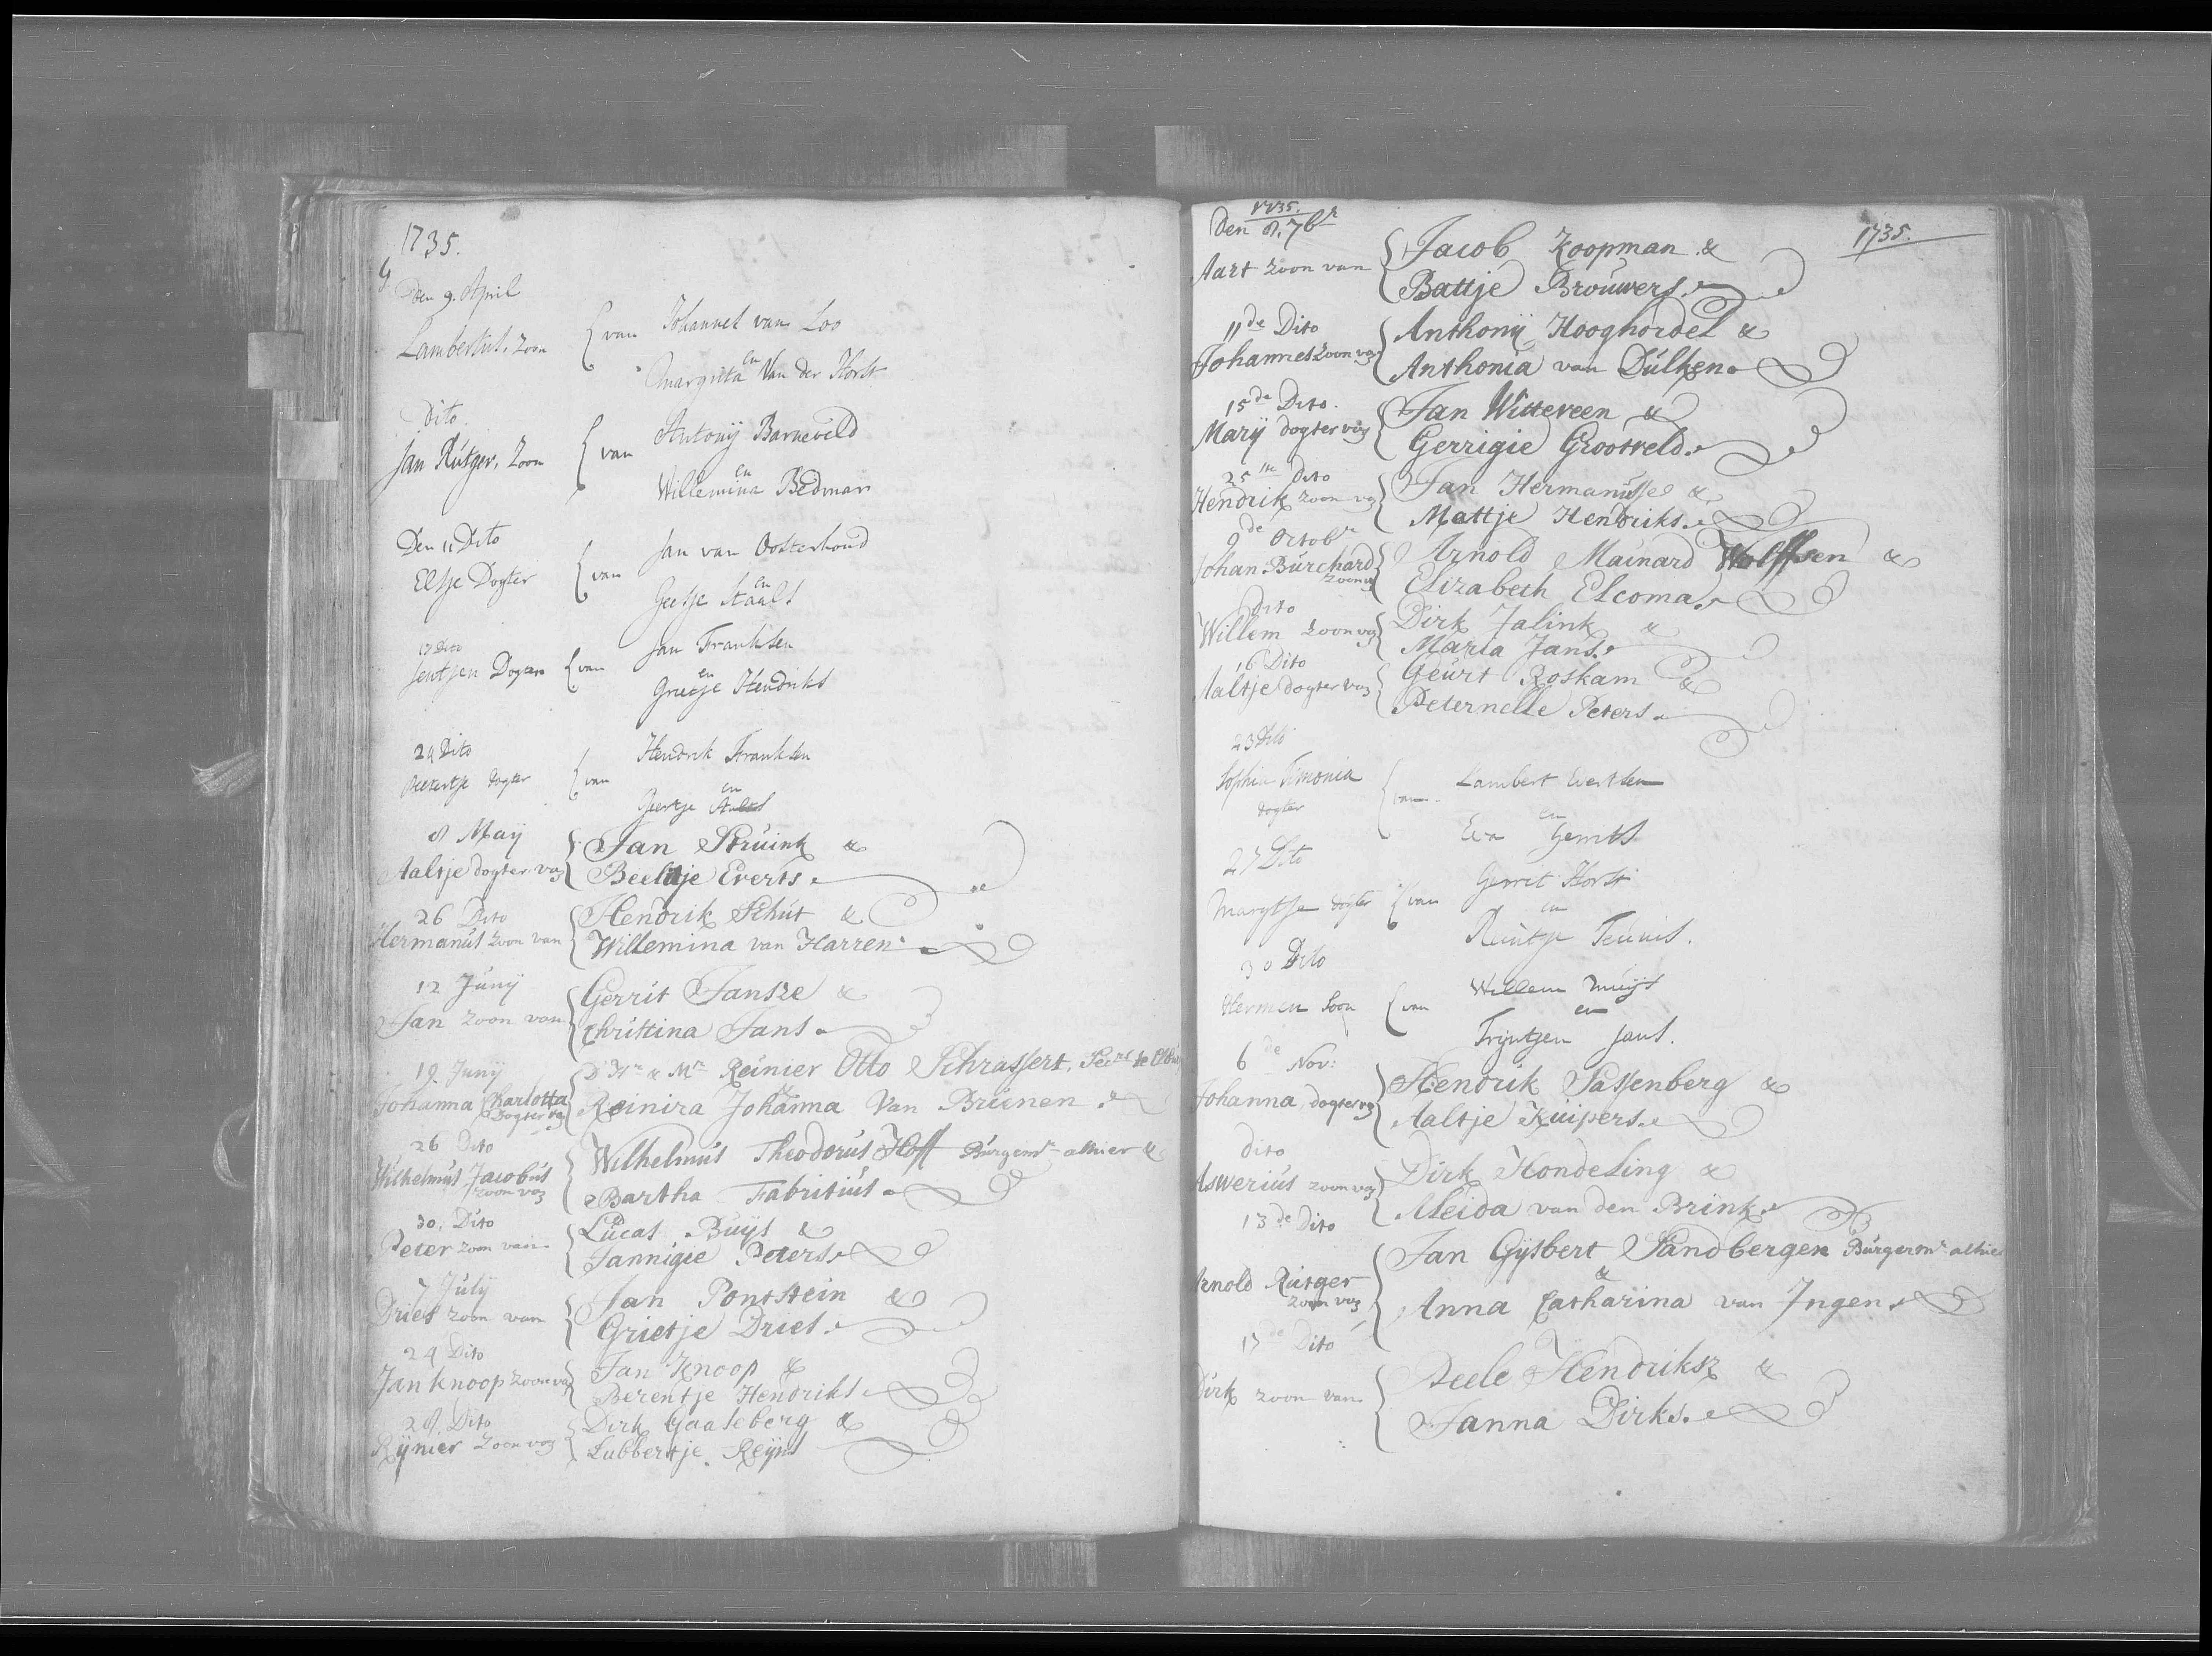 1735.
Den 9. April
Lambertus, zoon { van Johannes van Loo
en
Margrita Van der Horst
Dito.
Jan Rutger, Zoon { van Antonij Barneveld
en
Willemina Bedman
Den 11 Dito
Eltje Dogter { van Jan van Oosterhoud
en
Geetje Staals
17 Dito
Dogter { van Jan Franksen
en
Grietje Hendriks
24 Dito
Peetertje dogter { van Hendrik Franksen
en
Geertje
8 Maij
Aaltje dogter van { Jan Struink &
Beeltje Everts.
26 Dito
Hermanus zoon van { Hendrik Schut &
Willemina van Harren.
12 Junij
Jan zoon van { Gerrit Jansze &
Christina Jans.
19 Junij
Johanna Charlotta Dogter van { D Hr & Mr Reinier Otto Schrassert, Secrs te Elbu
Reinira Johanna Van Brienen.
26 Dito
Wilhelmus Jacobus zoon van { Wilhelmus Theodorus Hoff Burgemr alhier &
Bartha Fabritius.
30. Dito
Peter zoon van { Lucas Buijs &
Jannigie Peters.
7 Julij
Dries zoon van { Jan Pontstein &
Grietje Dries.
24 Dito
Jan Knoop zoon van { Jan Knoop &
Berentje Hendriks.
28. Dito
Rijnier Zoon van { Dirk Gaaleberg &
Lubbertje Reijns
1735. 1735.
Den 8. 7br
Aart zoon van { Jacob Koopman &
Battje Brouwers.
11de Dito
Johannes zoon van { Anthonij Hooghordel &
Anthonia van Dulken.
15de Dito.
Marij dogter van { Jan Witteveen &
Gerrigie Grootveld.
25m Dito
Hendrik zoon van { Jan Hermanusse &
Mattje Hendriks.
9de Octobr
Johan Burchard zoon van { Arnold Mainard Wolffsen &
Elizabeth Elcoma.
dito
Willem zoon van { Dirk Jalink &
Maria Jans.
16 Dito
Aaltje dogter van { Geurt Roskam &
Peternelle Peters.
23 Dito
Sophia Simonia dogter { van Lambert Evertsen
en
Eva Gerrits
27 Dito
Margtje dogter { van Gerrit Horst
en
Teunis.
30 Dito
Hermen Soon { van Willem Muijs
en
Trijntjen Jans.
6de Nov:
Johanna dogter van { Hendrik Sassenberg &
Aaltje Kuipers.
dito
Aswerius zoon van { Dirk Hondeling &
Aleida van den Brink.
13de Dito
Arnold Rutger zoon van { Jan Gijsbert Sandbergen Burgermr alhier
&
Anna Catharina van Ingen.
17de Dito
Dirk zoon van { Aeele Hendriksz &
Janna Dirks.